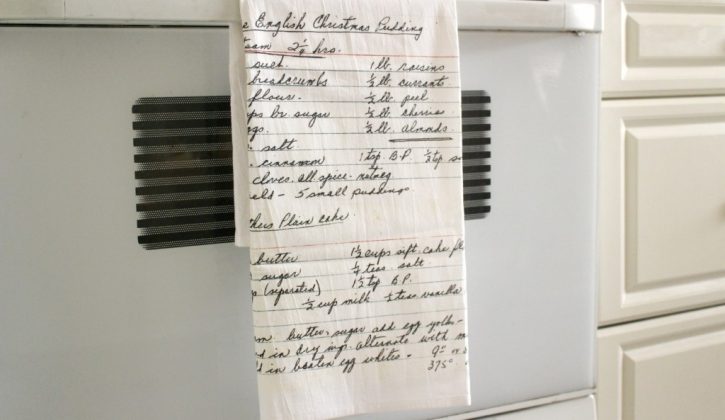 e English Christmas Pudding
team 2½ hrs.
suet. 1 lb. raisins
breadcrumbs ½ lb. currants
flour. ½ lb. peel
ps br. sugar ½ lb. cherries
gs. ½ lb. almonds.
salt
cinnamon 1 tsp B.P. ½ tsp so
cloves. all spice. nutmeg
elds - 5 small puddings
thers Plain cake
butter 1½ cups sift. cake fl
sugar ¼ teas. salt.
(separated) 1½ tsp B.P.
½ cup milk ½ teas vanilla
am butter, sugar add egg yolks -
d in dry ings. alternate with m
d in beaten egg whites. 9"
375°